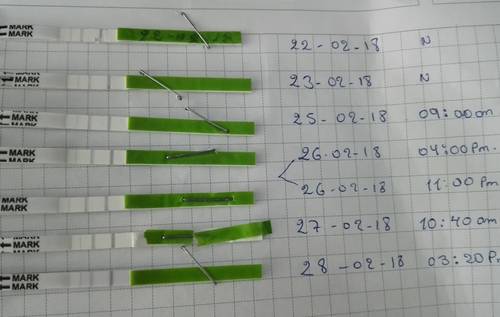 MARK
MARK 22-02-18 22-02-18 N
MARK
MARK 23-02-18 N
MARK
MARK 25-02-18 09:00am
MARK
MARK 26-02-18 04:00Pm.
MARK
MARK 26-02-18 11:00Pm
MARK
MARK 27-02-18 10:40am
MARK
MARK 28-02-18 03:20P